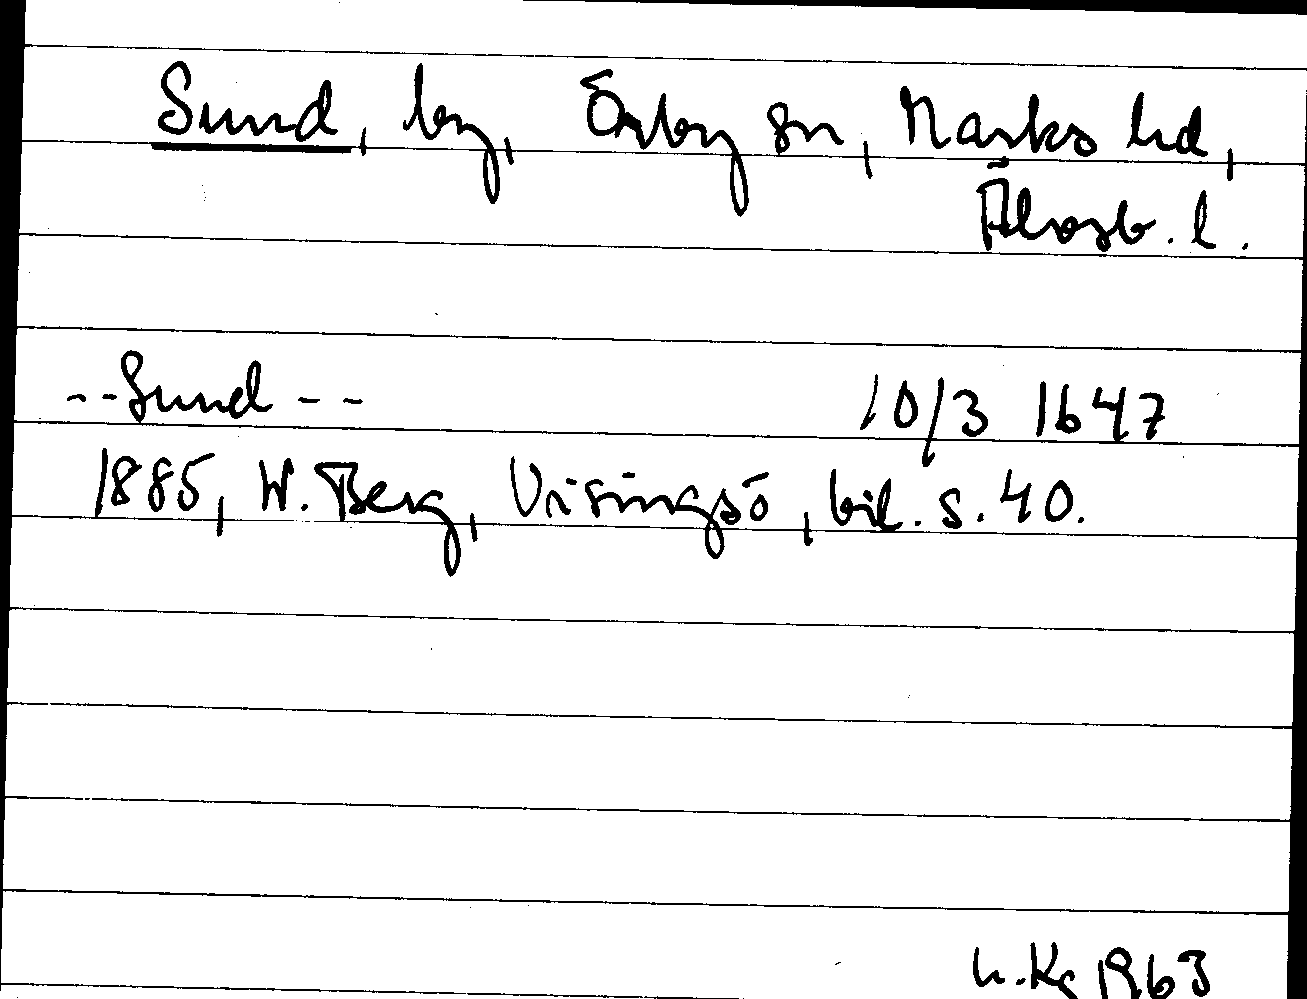 Sund, by, Örby sn, Marks hd,
Älvsb. l.
--Sund-- 10/3 1647
1885, W. Berg, Visingsö, bil. s. 40.
1963